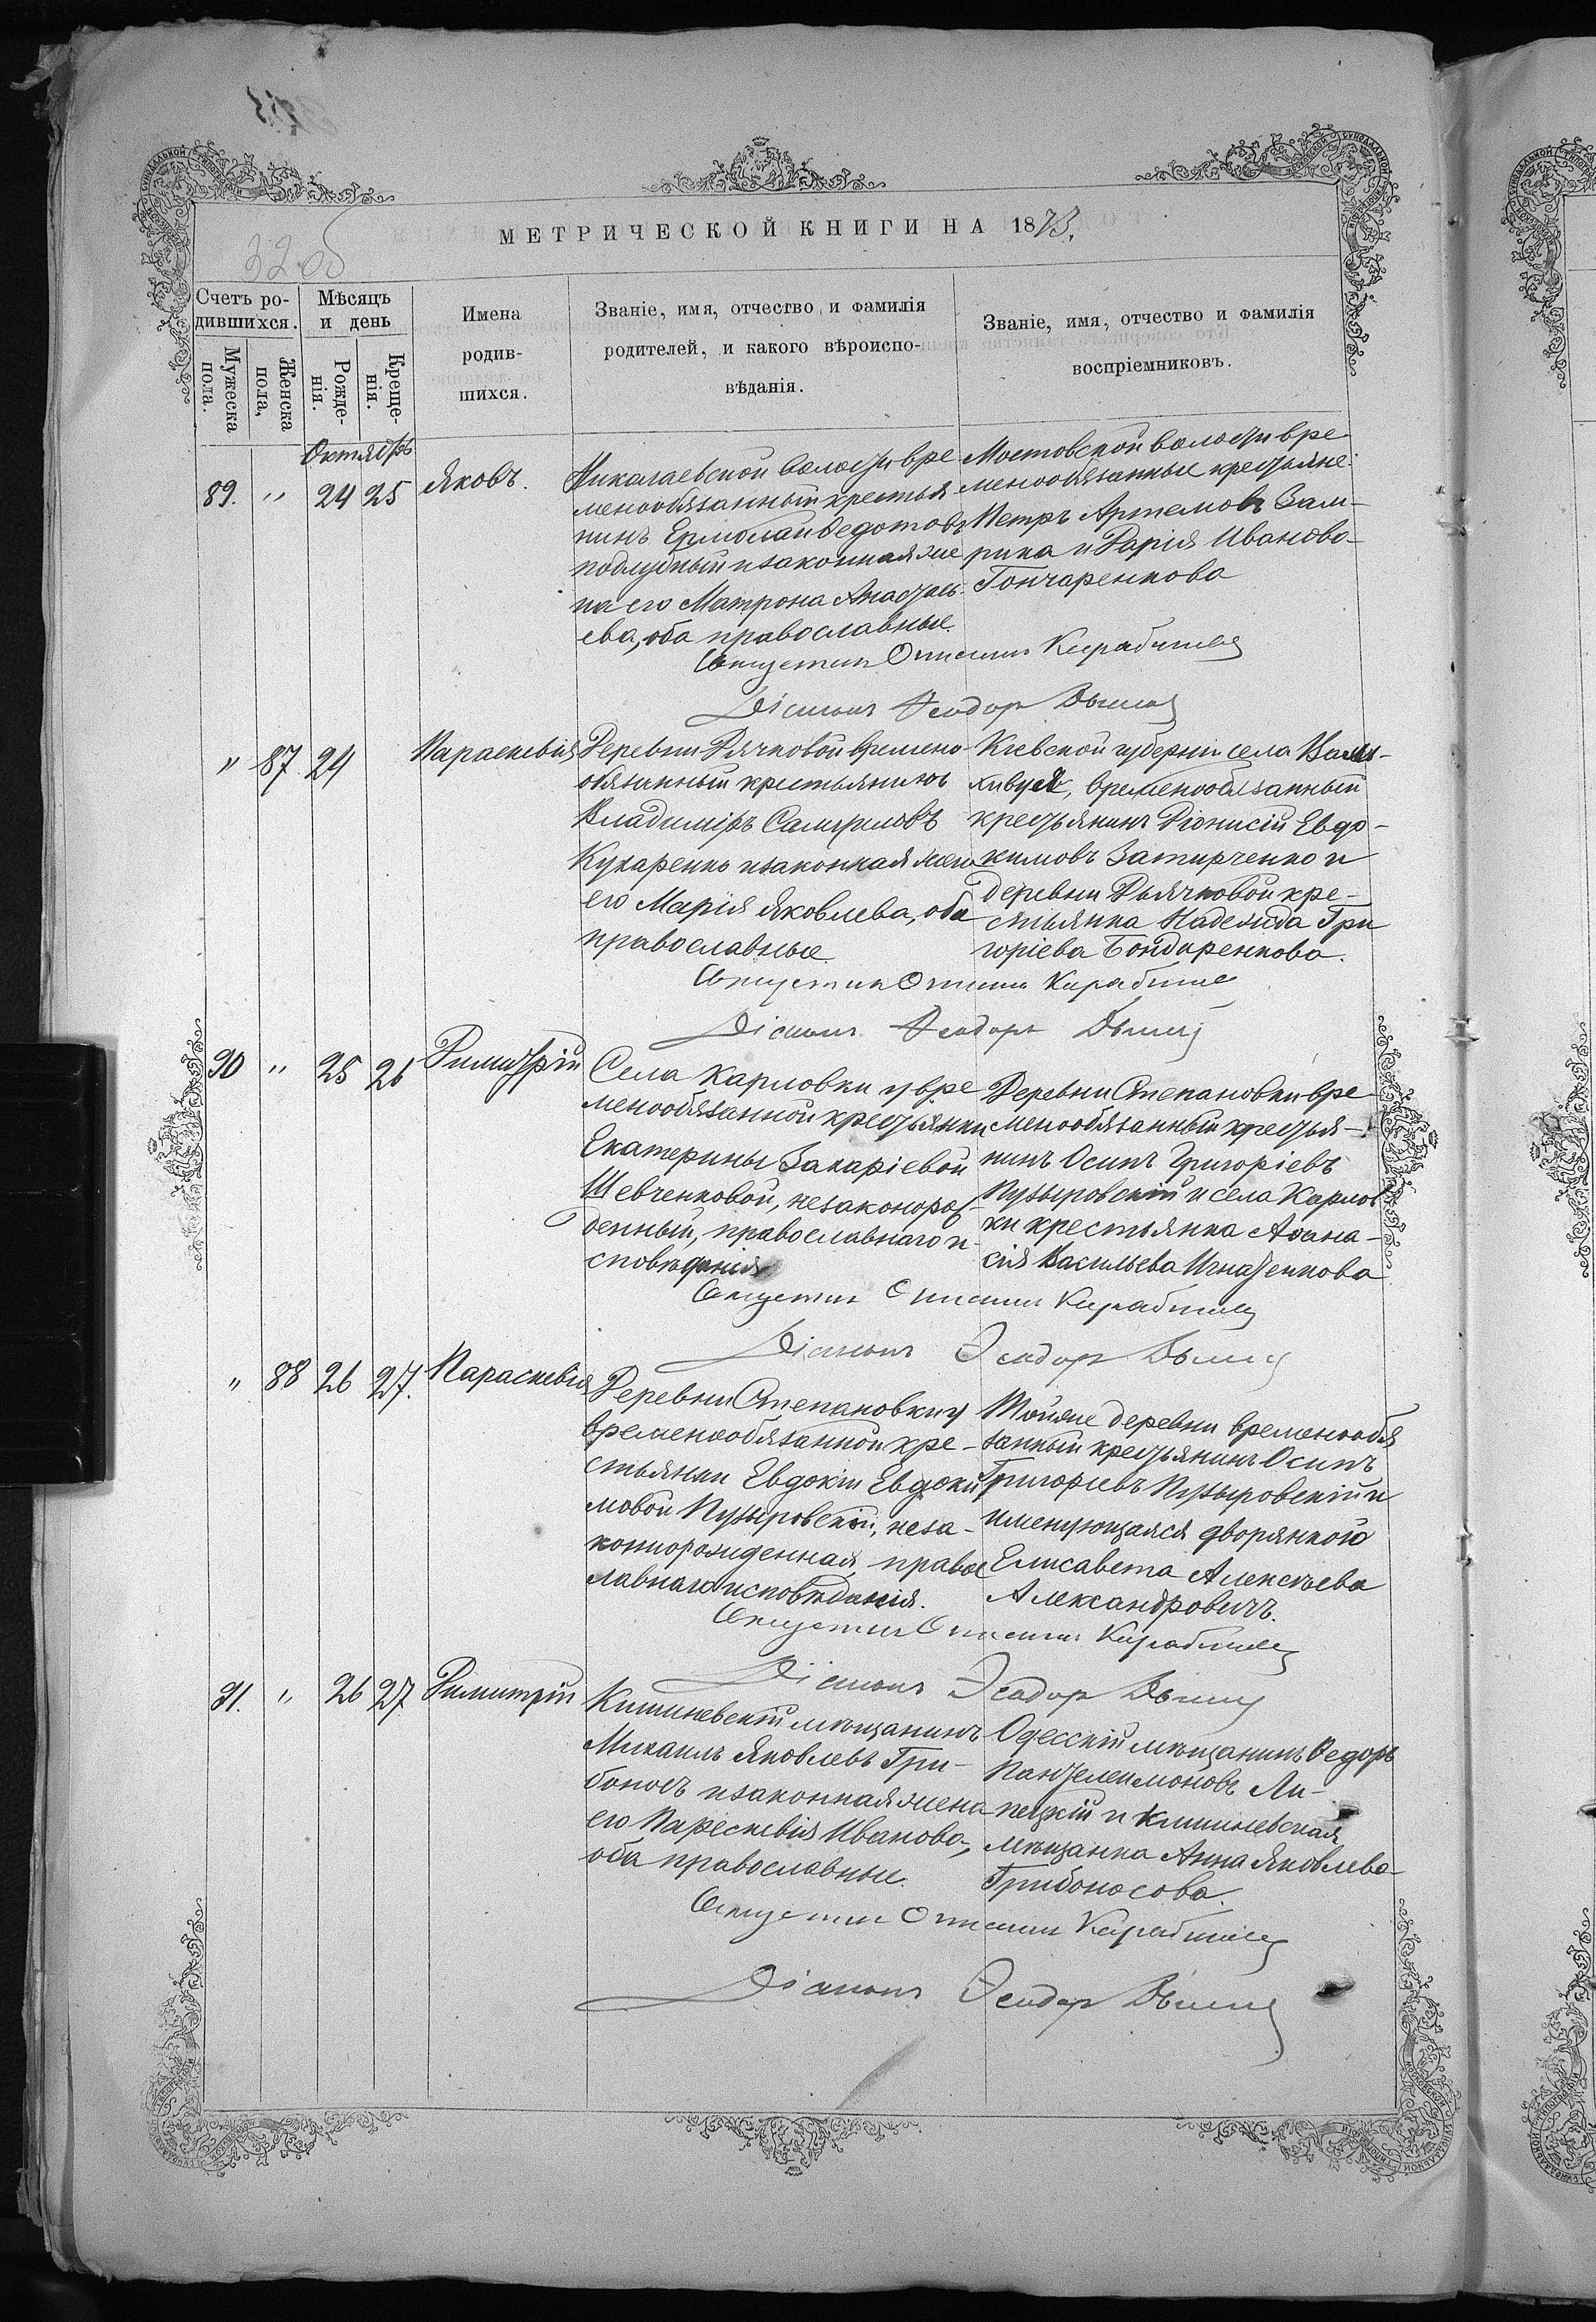 МЕТРИЧЕСКОЙ КНИГИ НА 1873.
32 об
Счетъ ро-
дившихся.
Мужеска пола.
Женска пола,
Мѣсяцъ
и день
Рожде-
нія.
Креще-
нія.
Имена
родив-
шихся.
Званіе, имя, отчество и фамилія
родителей, и какого вѣроиспо-
вѣданія.
Званіе, имя, отчество и фамилія
воспріемниковъ.
Октябрь
89. " 24 25 Яковъ.
Николаевской волости вре
менообязанный крестья
нинъ Ермолай Федотовъ
и законная же
на его Матрона
ева, оба православные.
Мостовской волости вре
менообязанные крестьяне:
Петръ Артемовъ Зам-
рика и Дарія Иванова
Гончаренкова
Діаконъ Феодор
" 87 24 Параскевія
Деревни Дячковой времено
обязанный крестьянинъ
Владиміръ
Кухаренко и законная жена
его Марія Яковлева, оба
православные.
Кіевской губерніи села
временнообязанный
крестьянинъ Діонисій Евдо-
кимовъ и
деревни Дьячковой кре-
стьянка Надежда Гри
горіева Бондаренкова.
Діаконъ Феодоръ
90 " 25 26 Димитрій
Села Карловки у вре
менообязанной крестьянки
Екатерины Захаріевой
Шевченковой, незаконорож-
денный, православнаго и-
сповѣданія
Деревни Степановки вре
менообязанный крестья-
нинъ Осипъ Григоріевъ
Пузыровскій и села Карлов
ки крестьянка Афана-
сія Васильева Игнатенкова
Діаконъ Феодор
" 88 26 27. Параскевія
Деревни Степановки у
временнообязанной кре-
стьянки Евдокіи Евдоки
мовой Пузыровской, неза-
коннорожденная, правос
лавнаго исповѣданія.
Тойже деревни временнообя
занный крестьянинъ Осипъ
Григоріевъ Пузыровскій и
именующаяся дворянкой
Елисавета Алексѣева
Александровичъ.
Діаконъ Феодор
91. " 26 27 Димитрій
Кишиневскій мѣщанинъ
Михаилъ Яковлевъ Гри-
боносъ и законная жена
его Параскевія Иванова,
оба православные.
Одесскій мѣщанинъ Федоръ
Пантелеимоновъ Ли-
пецкій и Кишиневская
мѣщанка Анна Яковлева
Грибоносова.
Діаконъ Феодор